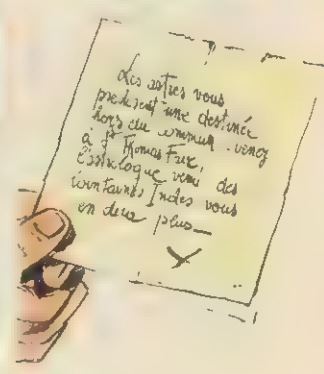 Les astres vous
predisent une destinée
hors du commun. venez
à St Thomas Fax,
l'astrologue venu des
lointaines Indes vous
en deux plus_
X